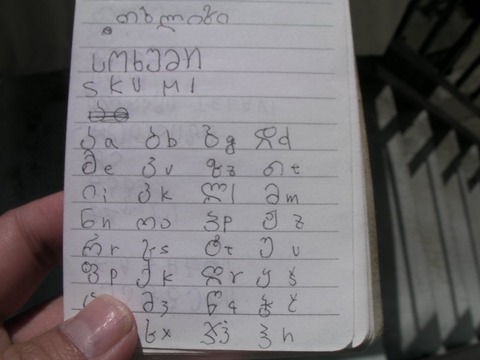 თბილისი
სოხუმი
S K U M I
ა a ბ b გ g დ d
ე e ვ v ზ z თ t
ი i კ k ლ l მ m
ნ n ო o პ p ჟ z
რ r ს s ტ t უ u
ფ p ქ k ღ r ყ
ძ წ ჭ
ხ x ჯ j ჰ h